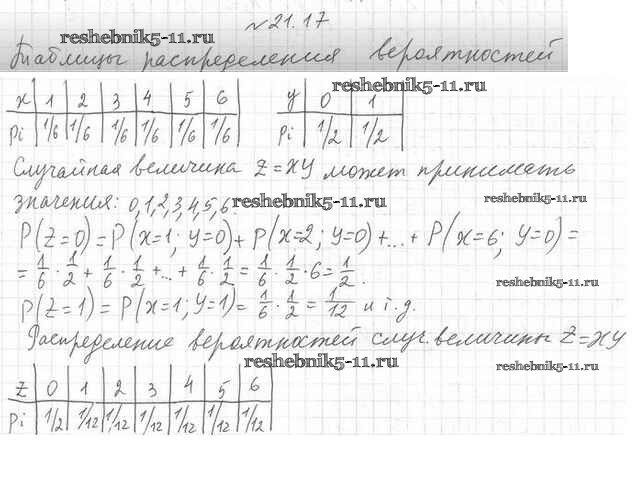 №21.17
reshebnik5-11.ru
Таблицы распределения вероятностей
reshebnik5-11.ru
x 1 2 3 4 5 6
Pi 1/6 1/6 1/6 1/6 1/6 1/6
y 0 1
Pi 1/2 1/2
Случайная величина Z=XY может принимать
значения: 0,1,2,3,4,5,6.
reshebnik5-11.ru
reshebnik5-11.ru
P(Z=0)=P(x=1; y=0)+P(x=2; y=0)+...+P(x=6; y=0)=
=1/6·1/2+1/6·1/2+...+1/6·1/2=1/6·1/2·6=1/2.
reshebnik5-11.ru
P(Z=1)=P(x=1; y=1)=1/6·1/2=1/12 и т.д.
reshebnik5-11.ru
Распределение вероятностей случ. величины Z=XY
reshebnik5-11.ru
reshebnik5-11.ru
Z 0 1 2 3 4 5 6
Pi 1/2 1/12 1/12 1/12 1/12 1/12 1/12